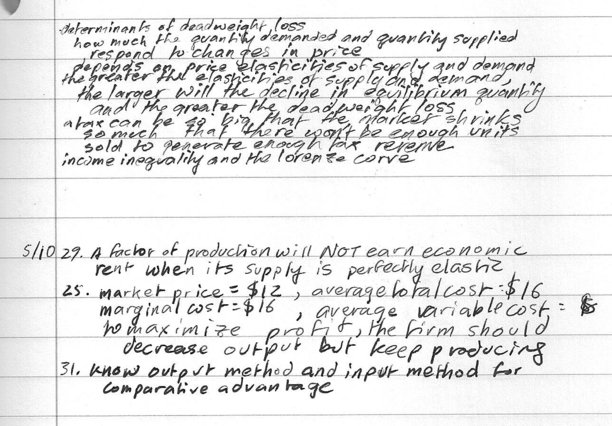 determinants of deadweight loss
how much the quantity demanded and quantity supplied
respond to changes in price
depends on price elasticities of supply and demand
the greater the elasticities of supply and demand,
the larger will the decline in equilibrium quantity
and the greater the deadweight loss
a tax can be so big that the market shrinks
so much that there won't be enough units
sold to generate enough tax revenue
income inequality and the lorenze corve
5/10 29. A factor of production will NOT earn economic
rent when its supply is perfectly elastic
25. market price = $12, average total cost = $16
marginal cost = $16, average variable cost =
to maximize profit, the firm should
decrease output but keep producing
31. know output method and input method for
comparative advantage